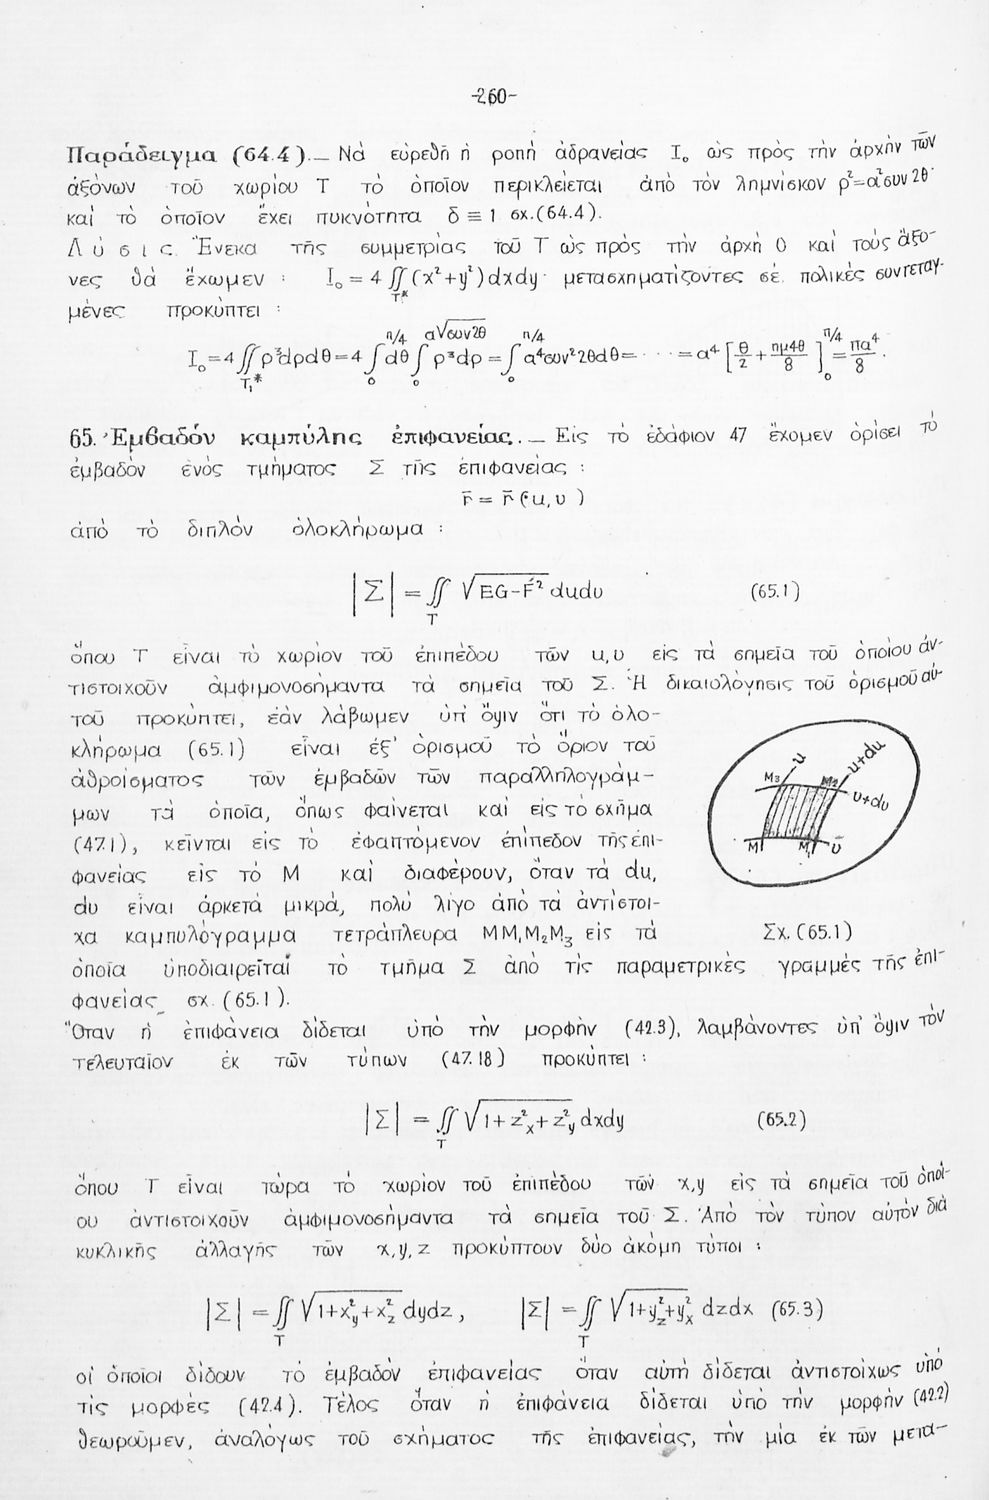 -260-
Παράδειγμα (64.4)._ Νὰ εὑρεθῇ ἡ ροπὴ ἀδρανείας I₀ ὡς πρὸς τὴν ἀρχὴν τῶν
ἀξόνων τοῦ χωρίου Τ τὸ ὁποῖον περικλείεται ἀπὸ τὸν λημνίσκον ρ²=α²συν2θ
καὶ τὸ ὁποῖον ἔχει πυκνότητα δ ≡ 1 σχ.(64.4).
Λύσις. Ἕνεκα τῆς συμμετρίας τοῦ Τ ὡς πρὸς τὴν ἀρχὴ Ο καὶ τοὺς ἄξο-
νες θὰ ἔχωμεν : I₀ = 4 ∬_{T*} (x²+y²)dxdy· μετασχηματίζοντες σὲ πολικὲς συντεταγ-
μένες προκύπτει :
I₀=4∬_{T₁*} ρ³dρdθ=4∫₀^{π/4}dθ∫₀^{α√συν2θ} ρ³dρ =∫₀^{π/4} α⁴συν²2θdθ= · · · =α⁴[θ/2 + ημ4θ/8]₀^{π/4} = πα⁴/8 .
65. Ἐμβαδὸν καμπύλης ἐπιφανείας._ Εἰς τὸ ἐδάφιον 47 ἔχομεν ὁρίσει τὸ
ἐμβαδὸν ἑνὸς τμήματος Σ τῆς ἐπιφανείας :
r̄ = r̄ (u,υ)
ἀπὸ τὸ διπλὸν ὁλοκλήρωμα :
|Σ| = ∬_T √(EG-F²) dudυ (65.1)
ὅπου Τ εἶναι τὸ χωρίον τοῦ ἐπιπέδου τῶν u,υ εἰς τὰ σημεῖα τοῦ ὁποίου ἀν-
τιστοιχοῦν ἀμφιμονοσήμαντα τὰ σημεῖα τοῦ Σ. Ἡ δικαιολόγησις τοῦ ὁρισμοῦ αὐ-
τοῦ προκύπτει, ἐὰν λάβωμεν ὑπ' ὄψιν ὅτι τὸ ὁλο-
κλήρωμα (65.1) εἶναι ἐξ' ὁρισμοῦ τὸ ὅριον τοῦ
ἀθροίσματος τῶν ἐμβαδῶν τῶν παραλληλογράμ-
μων τὰ ὁποῖα, ὅπως φαίνεται καὶ εἰς τὸ σχῆμα
(47.1), κεῖνται εἰς τὸ ἐφαπτόμενον ἐπίπεδον τῆς ἐπι-
φανείας εἰς τὸ Μ καὶ διαφέρουν, ὅταν τὰ du,
dυ εἶναι ἀρκετὰ μικρά, πολὺ λίγο ἀπὸ τὰ ἀντίστοι-
χα καμπυλόγραμμα τετράπλευρα ΜΜ₁Μ₂Μ₃ εἰς τὰ
M₃ u M₂ u+du
υ+dυ
M M₁ υ
Σχ. (65.1)
ὁποῖα ὑποδιαιρεῖται τὸ τμῆμα Σ ἀπὸ τὶς παραμετρικὲς γραμμὲς τῆς ἐπι-
φανείας σχ. (65.1).
Ὅταν ἡ ἐπιφάνεια δίδεται ὑπὸ τὴν μορφὴν (42.3), λαμβάνοντες ὑπ' ὄψιν τὸν
τελευταῖον ἐκ τῶν τύπων (47.18) προκύπτει :
|Σ| = ∬_T √(1+z²ₓ+z²_y) dxdy (65.2)
ὅπου Τ εἶναι τώρα τὸ χωρίον τοῦ ἐπιπέδου τῶν x,y εἰς τὰ σημεῖα τοῦ ὁποί-
ου ἀντιστοιχοῦν ἀμφιμονοσήμαντα τὰ σημεῖα τοῦ Σ. Ἀπὸ τὸν τύπον αὐτὸν διὰ
κυκλικῆς ἀλλαγῆς τῶν x,y,z προκύπτουν δύο ἀκόμη τύποι :
|Σ| = ∬_T √(1+x²_y+x²_z) dydz , |Σ| = ∬_T √(1+y²_z+y²ₓ) dzdx (65.3)
οἱ ὁποῖοι δίδουν τὸ ἐμβαδὸν ἐπιφανείας ὅταν αὐτὴ δίδεται ἀντιστοίχως ὑπὸ
τὶς μορφὲς (42.4). Τέλος ὅταν ἡ ἐπιφάνεια δίδεται ὑπὸ τὴν μορφὴν (42.2)
θεωροῦμεν, ἀναλόγως τοῦ σχήματος τῆς ἐπιφανείας, τὴν μία ἐκ τῶν μετα-